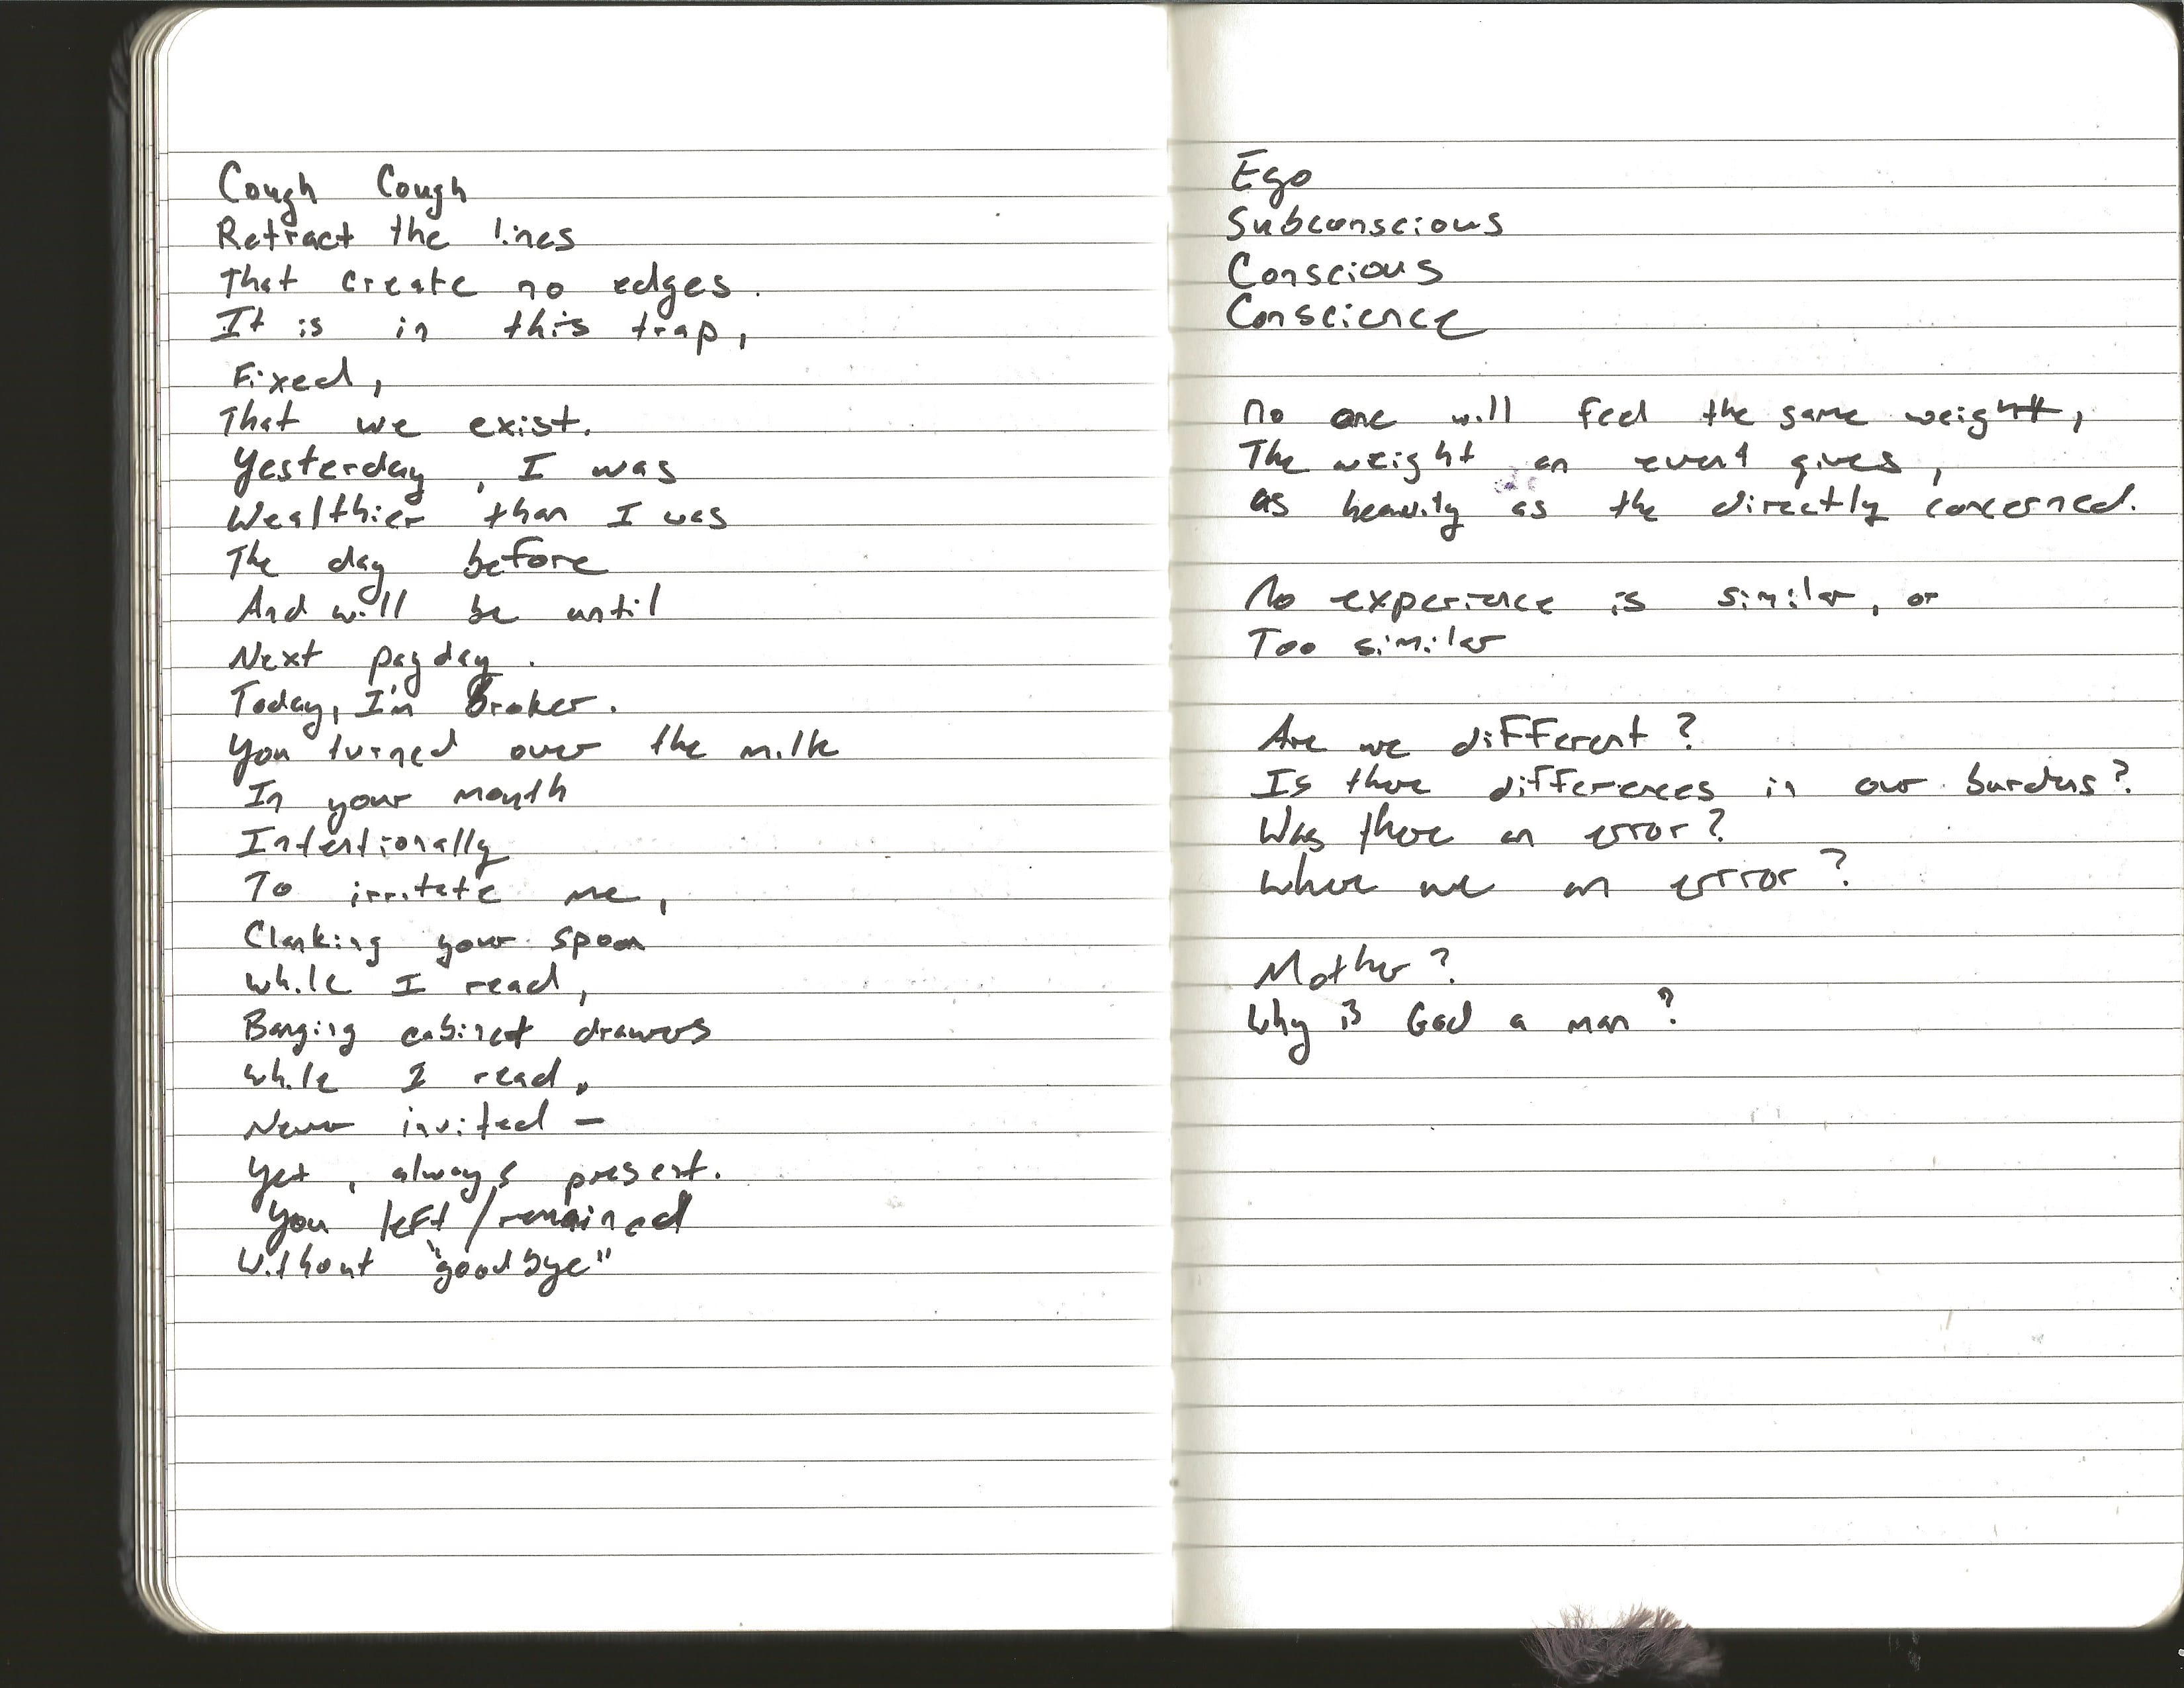 Cough Cough
Retract the lines
That create no edges.
It is in this trap,
Fixed,
That we exist.
Yesterday, I was
Wealthier than I was
The day before
And will be until
Next payday.
Today, I'm Broker.
You turned over the milk
In your mouth
Intentionally
To irritate me,
Clanking your spoon
While I read,
Banging cabinet drawers
While I read.
Never invited —
Yet, always present.
You left/remained
Without "goodbye"
Ego
Subconscious
Conscious
Conscience
No one will feel the same weight,
The weight an event gives,
as heavily as the directly concerned.
No experience is similar, or
Too similar
Are we different?
Is there differences in our burdens?
Was there an error?
Where we an error?
Mother?
Why is God a man?